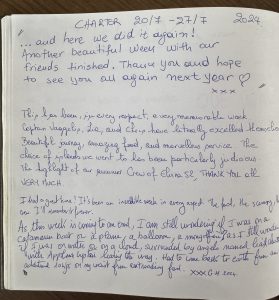 CHARTER 20/7 - 27/7 2024
...and here we did it again!
Another beautiful week with our
friends finished. Thank you and hope
to see you all again next year ♡
xxx
This has been, in every respect, a very memorable week
Captain and Chris have literally excelled themselves
Beautiful journey, amazing food, and marvellous service. The
choice of islands we went to has been particularly judicious.
The highlight of our summer. Crew of THANK YOU ALL
VERY MUCH.
I had a great time! It's been an incredible week in every regard. The food, the scenery,
one I'll remember forever.
As this week is coming to an end, I am still wondering if I was on a
catamaran boat or a plane, a balloon, a I still wonder
if I was on water or on a cloud, surrounded by angels named
with Captain leading the way. Hard to come back to earth from an
island or my want from food. xxx